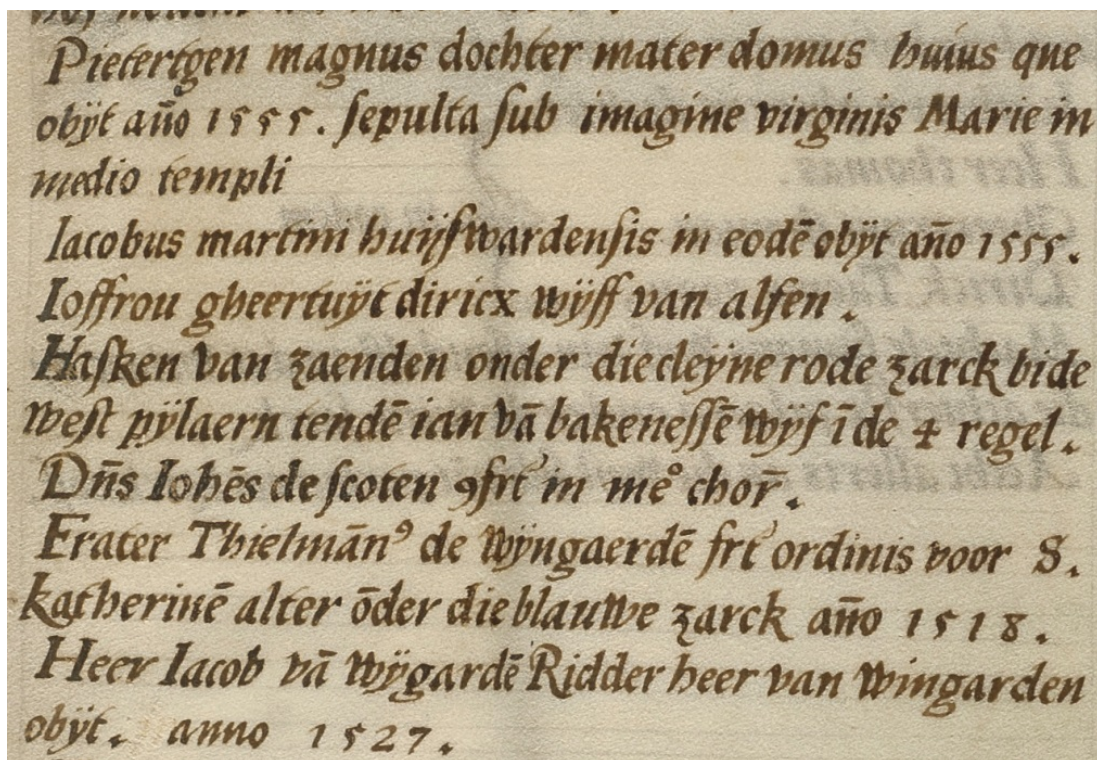 Pietertgen magnus dochter mater domus huius que
obÿt año 1555. sepulta sub imagine virginis Marie in
medio templi
Iacobus martini huijswardensis in eodē obÿt año 1555.
Ioffrou gheertuÿt diricx wÿff van alfen.
Hasken van zaenden onder die cleÿne rode zarck bide
west pÿlaern tendē ian vā bakenessē wÿf ī de 4 regel.
Dn̄s Iohēs de scoten ꝯfrt̄ in meͦ chor̄.
Frater Thielmānꝰ de wÿngaerdē frt̄ ordinis voor S.
katherinē alter ōder die blauwe zarck año 1518.
Heer Iacob vā wÿgardē Ridder heer van wingarden
obÿt. anno 1527.